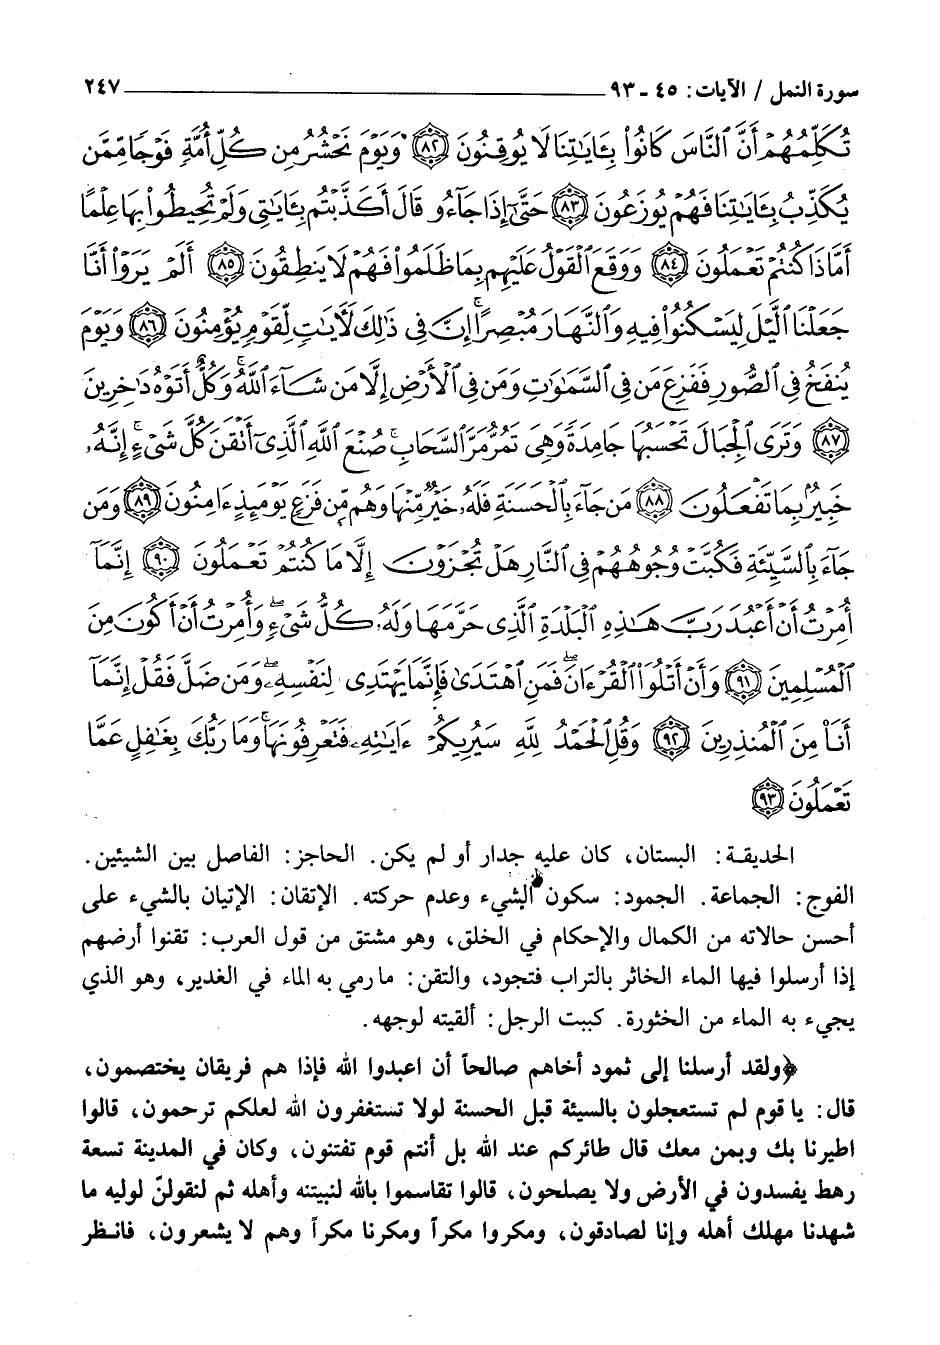 سورة النمل / الآيات: ٤٥ - ٩٣ ٢٤٧
تُكَلِّمُهُمْ أَنَّ ٱلنَّاسَ كَانُوا۟ بِـَٔايَـٰتِنَا لَا يُوقِنُونَ ﴿٨٢﴾ وَيَوْمَ نَحْشُرُ مِن كُلِّ أُمَّةٍ فَوْجًا مِّمَّن
يُكَذِّبُ بِـَٔايَـٰتِنَا فَهُمْ يُوزَعُونَ ﴿٨٣﴾ حَتَّىٰٓ إِذَا جَآءُو قَالَ أَكَذَّبْتُم بِـَٔايَـٰتِى وَلَمْ تُحِيطُوا۟ بِهَا عِلْمًا
أَمَّاذَا كُنتُمْ تَعْمَلُونَ ﴿٨٤﴾ وَوَقَعَ ٱلْقَوْلُ عَلَيْهِم بِمَا ظَلَمُوا۟ فَهُمْ لَا يَنطِقُونَ ﴿٨٥﴾ أَلَمْ يَرَوْا۟ أَنَّا
جَعَلْنَا ٱلَّيْلَ لِيَسْكُنُوا۟ فِيهِ وَٱلنَّهَارَ مُبْصِرًا ۚ إِنَّ فِى ذَٰلِكَ لَـَٔايَـٰتٍ لِّقَوْمٍ يُؤْمِنُونَ ﴿٨٦﴾ وَيَوْمَ
يُنفَخُ فِى ٱلصُّورِ فَفَزِعَ مَن فِى ٱلسَّمَـٰوَٰتِ وَمَن فِى ٱلْأَرْضِ إِلَّا مَن شَآءَ ٱللَّهُ ۚ وَكُلٌّ أَتَوْهُ دَٰخِرِينَ
﴿٨٧﴾ وَتَرَى ٱلْجِبَالَ تَحْسَبُهَا جَامِدَةً وَهِىَ تَمُرُّ مَرَّ ٱلسَّحَابِ ۚ صُنْعَ ٱللَّهِ ٱلَّذِىٓ أَتْقَنَ كُلَّ شَىْءٍ ۚ إِنَّهُۥ
خَبِيرٌۢ بِمَا تَفْعَلُونَ ﴿٨٨﴾ مَن جَآءَ بِٱلْحَسَنَةِ فَلَهُۥ خَيْرٌ مِّنْهَا وَهُم مِّن فَزَعٍ يَوْمَئِذٍ ءَامِنُونَ ﴿٨٩﴾ وَمَن
جَآءَ بِٱلسَّيِّئَةِ فَكُبَّتْ وُجُوهُهُمْ فِى ٱلنَّارِ هَلْ تُجْزَوْنَ إِلَّا مَا كُنتُمْ تَعْمَلُونَ ﴿٩٠﴾ إِنَّمَآ
أُمِرْتُ أَنْ أَعْبُدَ رَبَّ هَـٰذِهِ ٱلْبَلْدَةِ ٱلَّذِى حَرَّمَهَا وَلَهُۥ كُلُّ شَىْءٍ ۖ وَأُمِرْتُ أَنْ أَكُونَ مِنَ
ٱلْمُسْلِمِينَ ﴿٩١﴾ وَأَنْ أَتْلُوَا۟ ٱلْقُرْءَانَ ۖ فَمَنِ ٱهْتَدَىٰ فَإِنَّمَا يَهْتَدِى لِنَفْسِهِۦ ۖ وَمَن ضَلَّ فَقُلْ إِنَّمَآ
أَنَا۠ مِنَ ٱلْمُنذِرِينَ ﴿٩٢﴾ وَقُلِ ٱلْحَمْدُ لِلَّهِ سَيُرِيكُمْ ءَايَـٰتِهِۦ فَتَعْرِفُونَهَا ۚ وَمَا رَبُّكَ بِغَـٰفِلٍ عَمَّا
تَعْمَلُونَ ﴿٩٣﴾
الحديقة: البستان، كان عليه جدار أو لم يكن. الحاجز: الفاصل بين الشيئين.
الفوج: الجماعة. الجمود: سكون الشيء وعدم حركته. الإتقان: الإتيان بالشيء على
أحسن حالاته من الكمال والإحكام في الخلق، وهو مشتق من قول العرب: تقنوا أرضهم
إذا أرسلوا فيها الماء الخاثر بالتراب فتجود، والتقن: ما رمي به الماء في الغدير، وهو الذي
يجيء به الماء من الخثورة. كببت الرجل: ألقيته لوجهه.
﴿ولقد أرسلنا إلى ثمود أخاهم صالحاً أن اعبدوا الله فإذا هم فريقان يختصمون،
قال: يا قوم لم تستعجلون بالسيئة قبل الحسنة لولا تستغفرون الله لعلكم ترحمون، قالوا
اطيرنا بك وبمن معك قال طائركم عند الله بل أنتم قوم تفتنون، وكان في المدينة تسعة
رهط يفسدون في الأرض ولا يصلحون، قالوا تقاسموا بالله لنبيتنه وأهله ثم لنقولنّ لوليه ما
شهدنا مهلك أهله وإنا لصادقون، ومكروا مكراً ومكرنا مكراً وهم لا يشعرون، فانظر